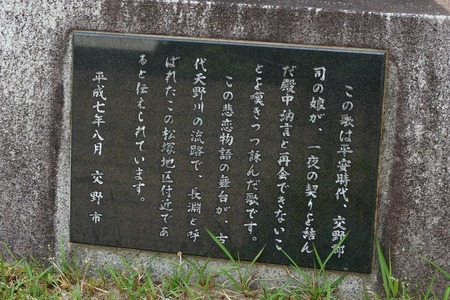 この歌は平安時代、交野郡
司の娘が、一夜の契りを結ん
だ殿中納言と再会できないこ
とを嘆きつつ詠んだ歌です。
この悲恋物語の舞台が、古
代天野川の流路で、長淵と呼
ばれたこの松塚地区付近であ
ると伝えられています。
平成七年八月 交野市